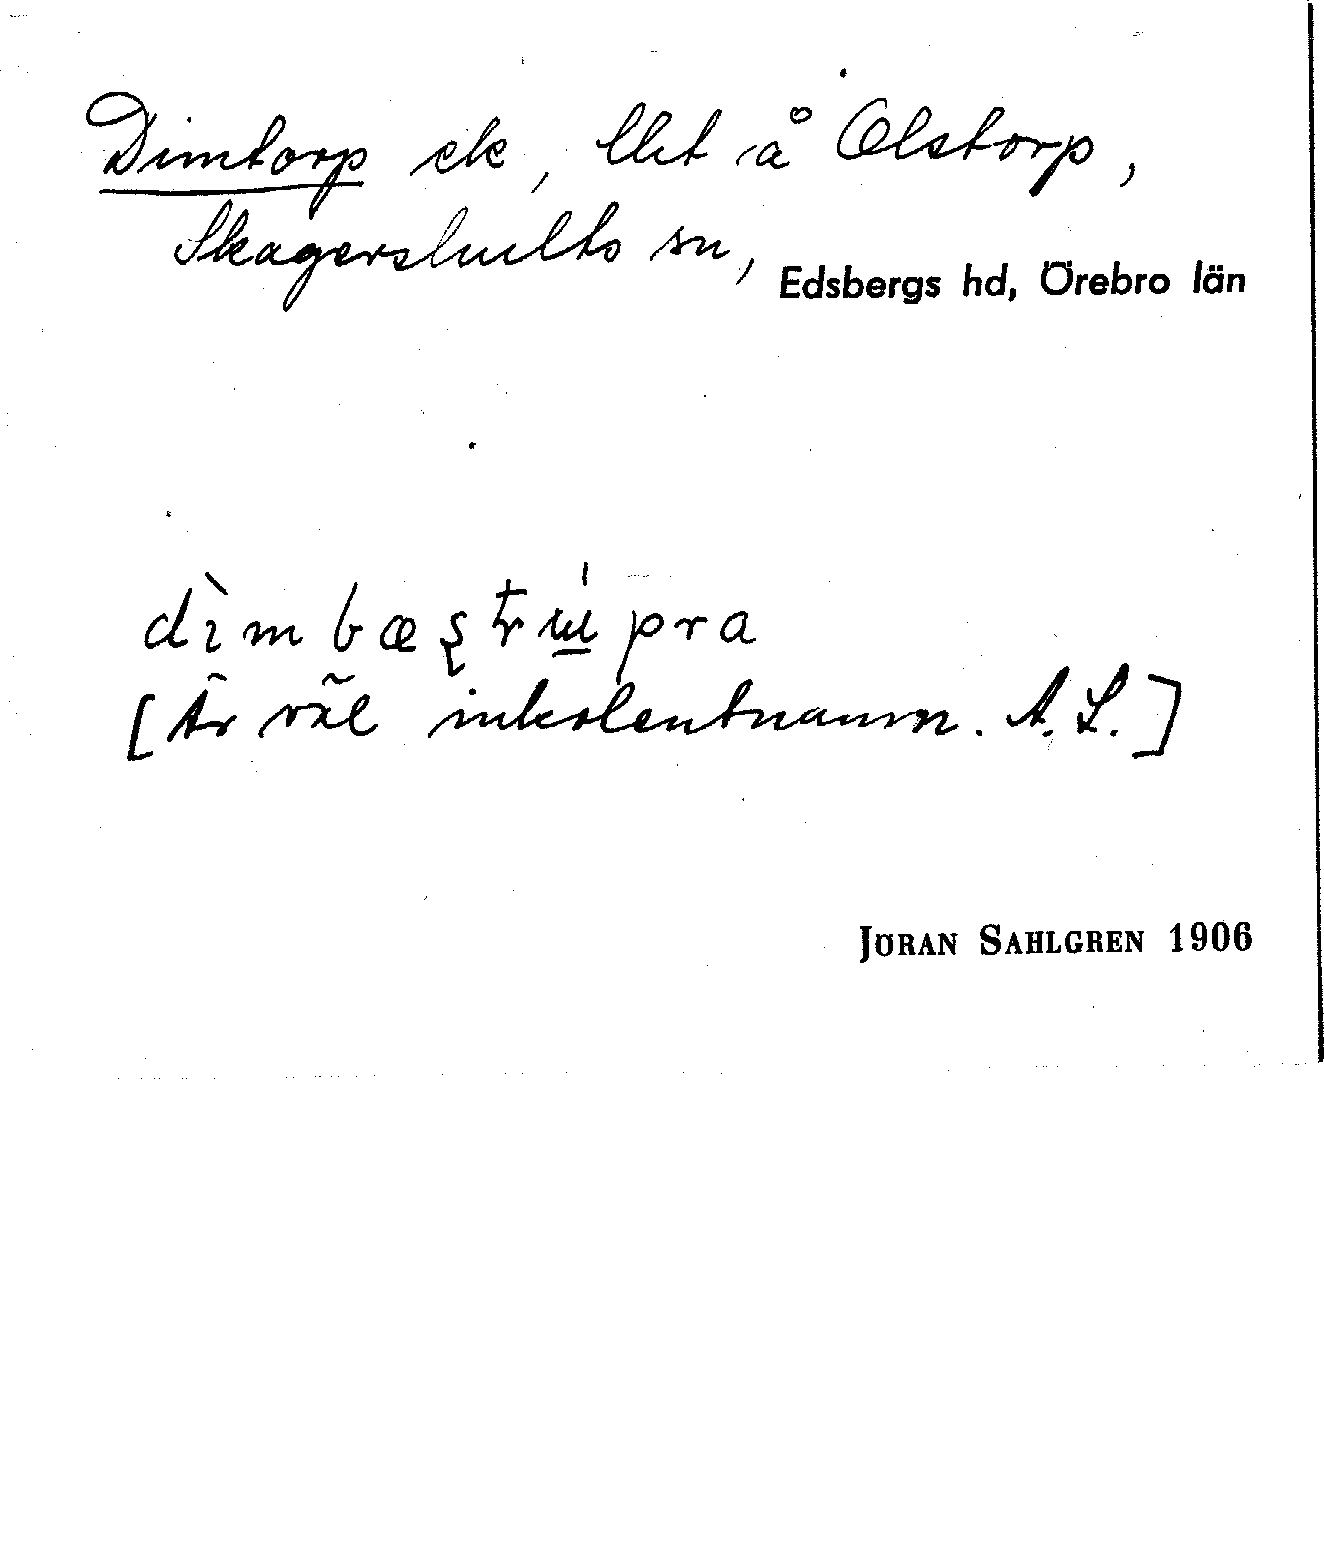 Dimtorp ek, lht å Olstorp,
Skagershults sn, Edsbergs hd, Örebro län
[Är väl inkolentnamn. A. L.]
JÖRAN SAHLGREN 1906